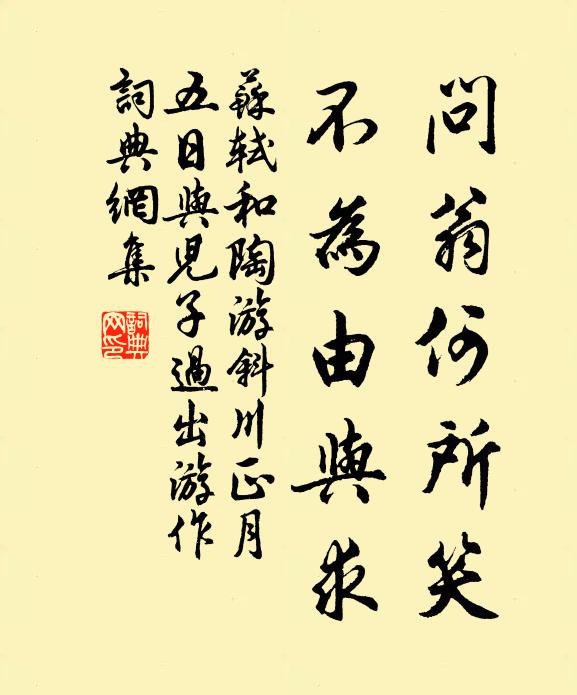 問翁何所笑
不為由與求
蘇軾和陶游斜川正月
五日與兒子過出游作
詞典網集
詞典網印